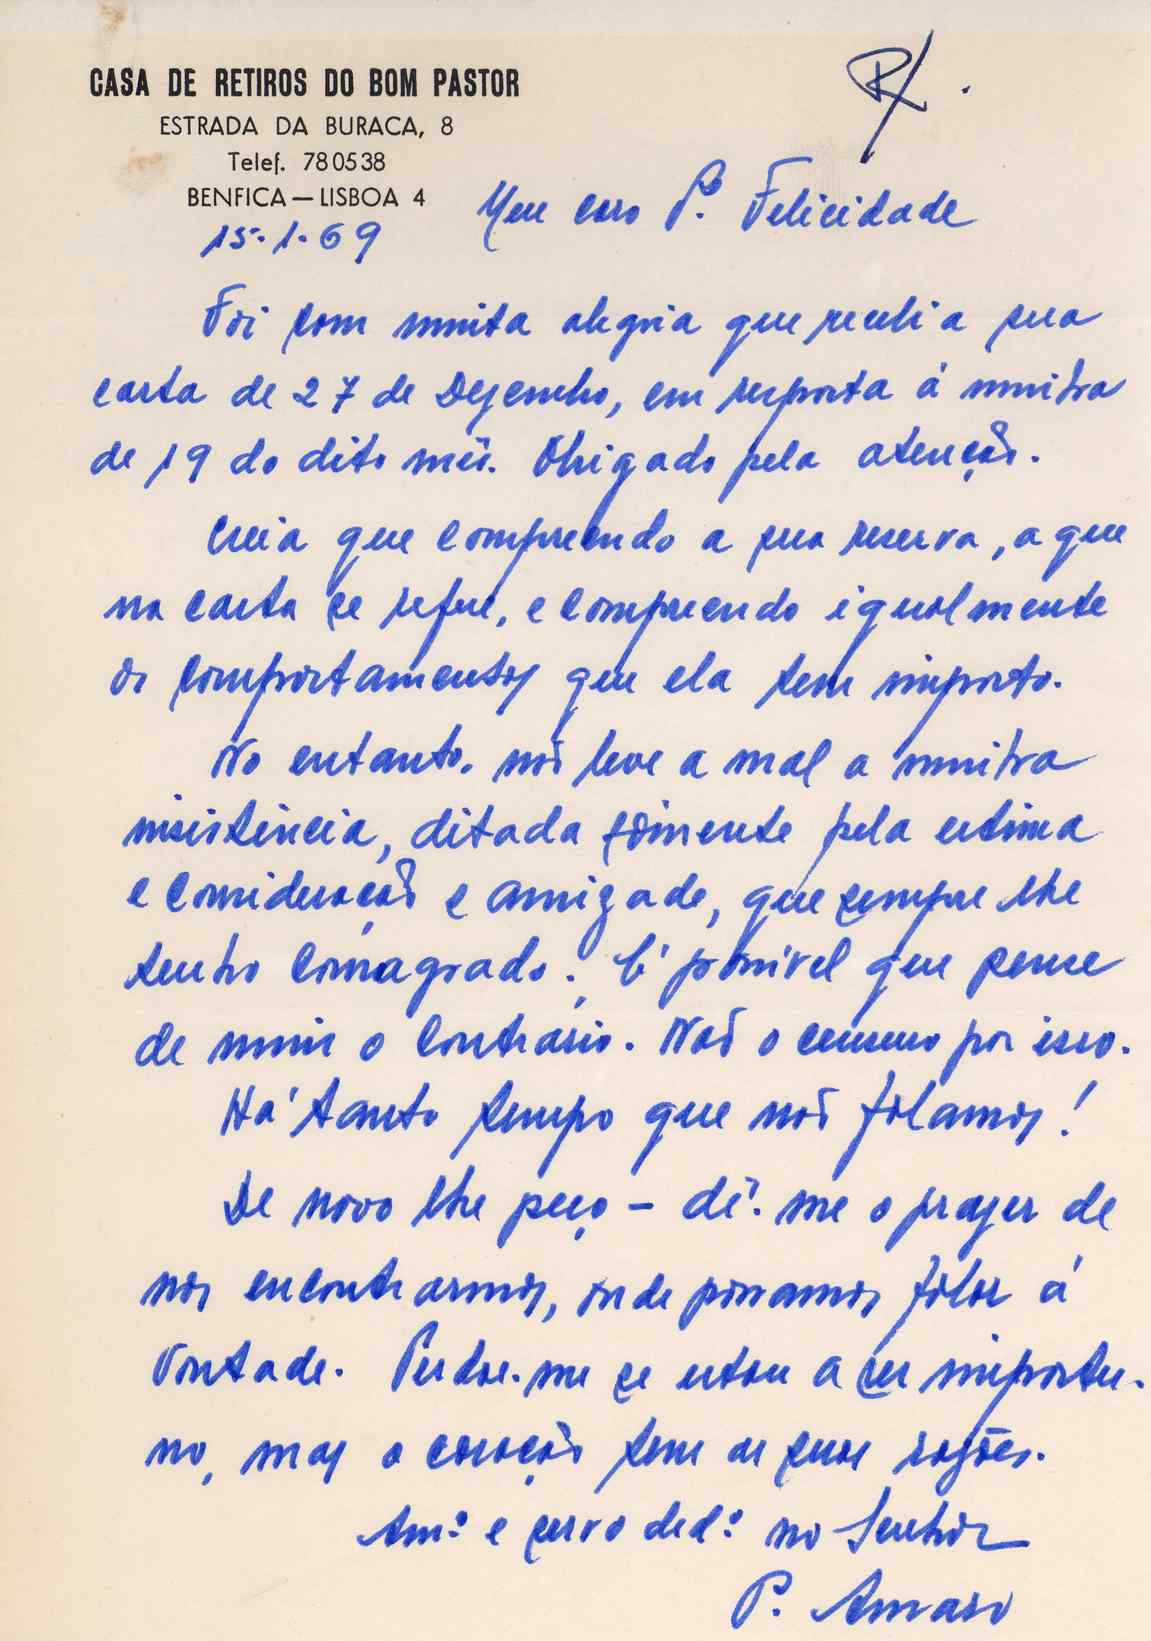 CASA DE RETIROS DO BOM PASTOR
ESTRADA DA BURACA, 8
Telef. 780538
BENFICA — LISBOA 4
R/.
15-1-69
Meu caro P.e Felicidade
Foi com muita alegria que recebi a sua
carta de 27 de Dezembro, em resposta á minha
de 19 do dito mês. Obrigado pela atenção.
Creia que compreendo a sua reserva, a que
na carta se refere, e compreendo igualmente
os comportamentos que ela tem imposto.
No entanto, não leve a mal a minha
insistência, ditada sòmente pela estima
e consideração e amizade, que sempre lhe
tenho consagrado. É possível que pense
de mim o contrário. Não o censuro por isso.
Há tanto tempo que não falamos!
De novo lhe peço — dê-me o prazer de
nos encontrarmos, onde possamos falar á
vontade. Perdoe-me se estou a ser importu-
no, mas o coração tem as suas razões.
Am.o e servo ded.o no Senhor
P. Amaro